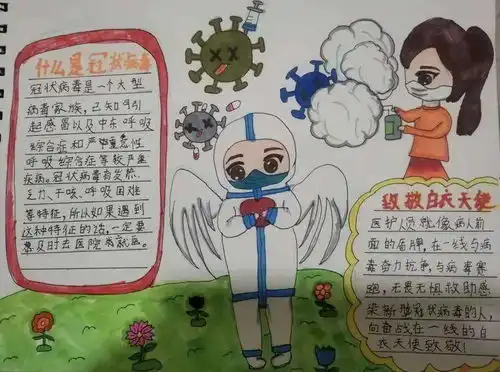 什么是冠状病毒
冠状病毒是一个大型
病毒家族，已知可引
起感冒以及中东呼吸
综合征和严重急性
呼吸综合征等较严重
疾病。冠状病毒有发热、
乏力、干咳、呼吸困难
等特征，所以如果遇到
这种特征的话，一定要
及时去医院就医。
致敬白衣天使
医护人员就像病人前
面的盾牌，在一线与病
毒奋力抗争，与病毒赛
跑，无畏无惧救助感
染新型冠状病毒的人，
向奋战在一线的白
衣天使致敬！